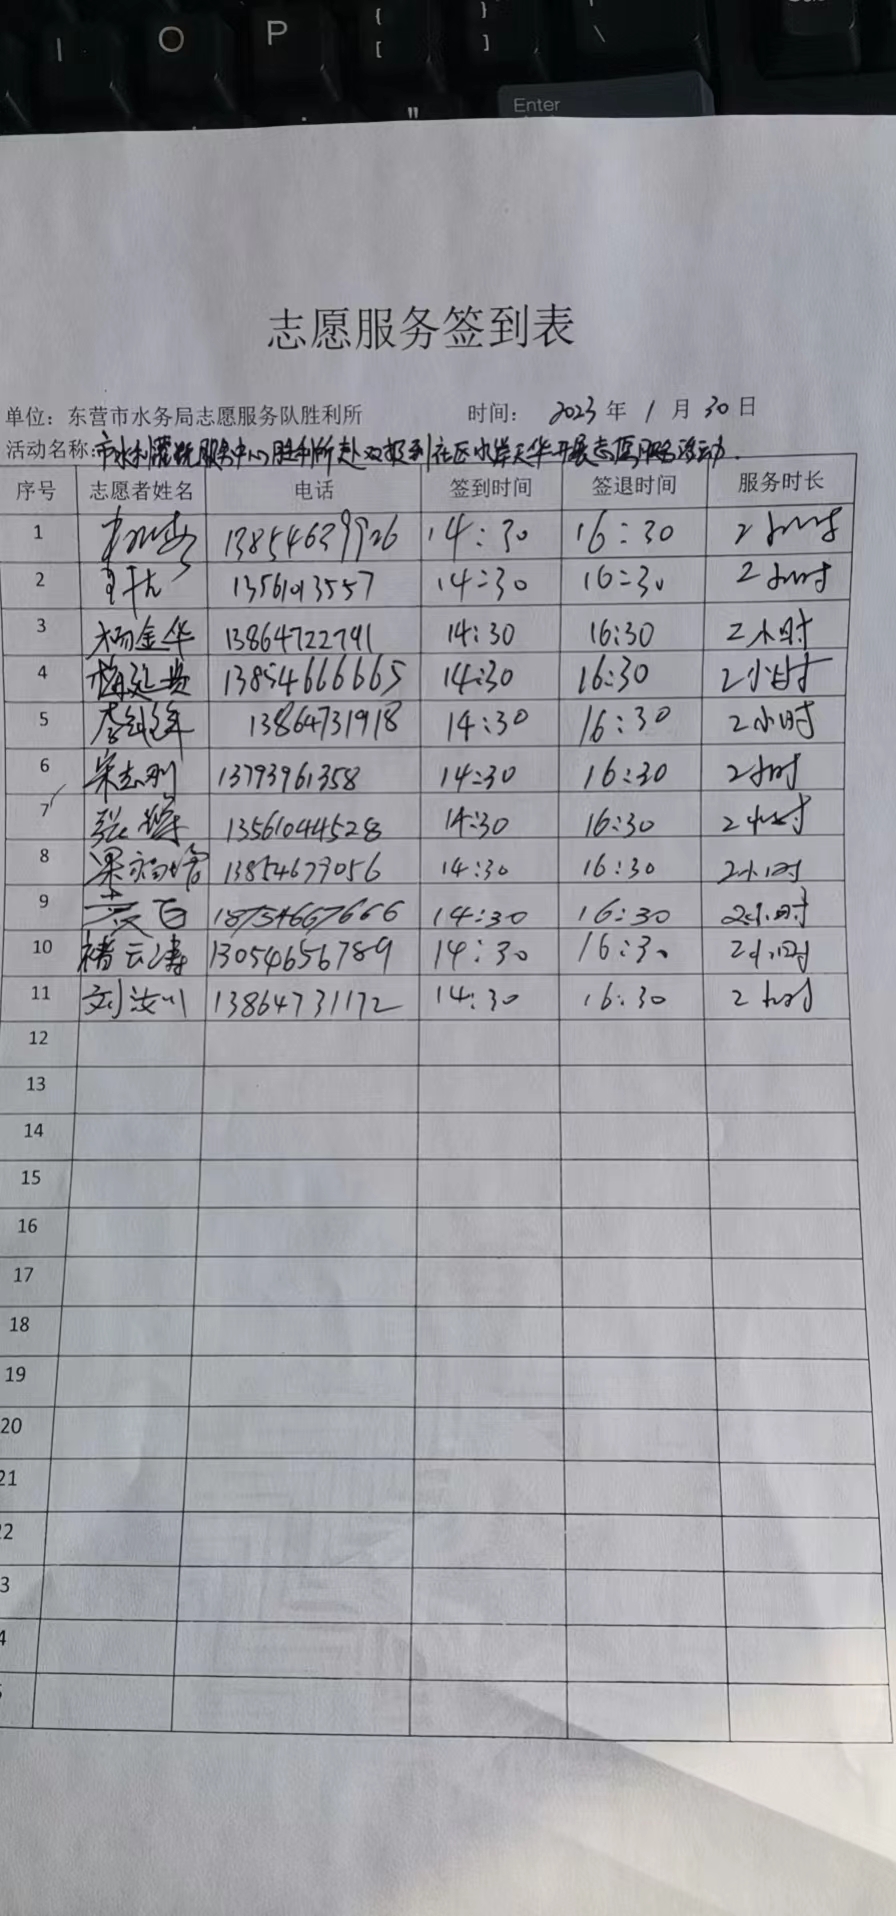 I O P { [ } ] \
Enter
"
志愿服务签到表
单位：东营市水务局志愿服务队胜利所 时间： 2023 年 1 月 30 日
活动名称：市水利灌溉服务中心胜利所赴双报到社区水岸天华开展志愿服务活动.
序号 志愿者姓名 电话 签到时间 签退时间 服务时长
1 13854639926 14:30 16:30 2小时
2 13561013557 14:30 16:30 2小时
3 杨金华 13864722791 14:30 16:30 2小时
4 13854666665 14:30 16:30 2小时
5 13864731918 14:30 16:30 2小时
6 宋志刚 13793961358 14:30 16:30 2小时
7 张 13561044528 14:30 16:30 2小时
8 梁 13854679056 14:30 16:30 2小时
9 18754667666 14:30 16:30 2小时
10 褚云涛 13054656789 14:30 16:30 2小时
11 刘汝川 13864731172 14:30 16:30 2小时
12
13
14
15
16
17
18
19
20
21
22
3
4